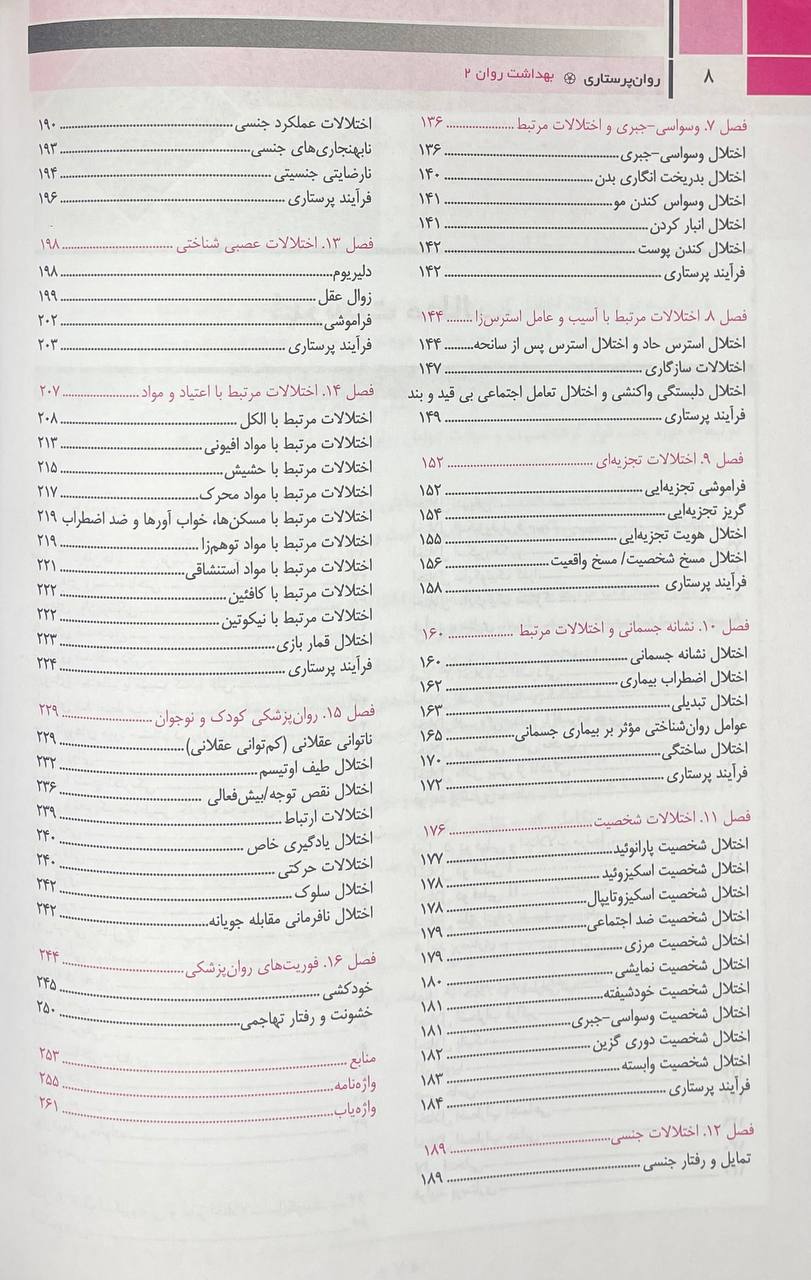 ۸
روان‌پرستاری ֍ بهداشت روان ۲
فصل ۷. وسواسی-جبری و اختلالات مرتبط ..................... ۱۳۶
اختلال وسواسی-جبری ..................... ۱۳۶
اختلال بدریخت انگاری بدن ..................... ۱۴۰
اختلال وسواس کندن مو ..................... ۱۴۱
اختلال انبار کردن ..................... ۱۴۱
اختلال کندن پوست ..................... ۱۴۲
فرآیند پرستاری ..................... ۱۴۲
فصل ۸. اختلالات مرتبط با آسیب و عامل استرس‌زا ........ ۱۴۴
اختلال استرس حاد و اختلال استرس پس از سانحه ......... ۱۴۴
اختلالات سازگاری ..................... ۱۴۷
اختلال دلبستگی واکنشی و اختلال تعامل اجتماعی بی قید و بند
فرآیند پرستاری ..................... ۱۴۹
فصل ۹. اختلالات تجزیه‌ای ..................... ۱۵۲
فراموشی تجزیه‌ایی ..................... ۱۵۲
گریز تجزیه‌ایی ..................... ۱۵۴
اختلال هویت تجزیه‌ایی ..................... ۱۵۵
اختلال مسخ شخصیت/ مسخ واقعیت ..................... ۱۵۶
فرآیند پرستاری ..................... ۱۵۸
فصل ۱۰. نشانه جسمانی و اختلالات مرتبط ..................... ۱۶۰
اختلال نشانه جسمانی ..................... ۱۶۰
اختلال اضطراب بیماری ..................... ۱۶۲
اختلال تبدیلی ..................... ۱۶۳
عوامل روان‌شناختی مؤثر بر بیماری جسمانی ..................... ۱۶۵
اختلال ساختگی ..................... ۱۷۰
فرآیند پرستاری ..................... ۱۷۲
فصل ۱۱. اختلالات شخصیت ..................... ۱۷۶
اختلال شخصیت پارانوئید ..................... ۱۷۷
اختلال شخصیت اسکیزوئید ..................... ۱۷۸
اختلال شخصیت اسکیزوتایپال ..................... ۱۷۸
اختلال شخصیت ضد اجتماعی ..................... ۱۷۹
اختلال شخصیت مرزی ..................... ۱۷۹
اختلال شخصیت نمایشی ..................... ۱۸۰
اختلال شخصیت خودشیفته ..................... ۱۸۱
اختلال شخصیت وسواسی-جبری ..................... ۱۸۱
اختلال شخصیت دوری گزین ..................... ۱۸۲
اختلال شخصیت وابسته ..................... ۱۸۳
فرآیند پرستاری ..................... ۱۸۴
فصل ۱۲. اختلالات جنسی ..................... ۱۸۹
تمایل و رفتار جنسی ..................... ۱۸۹
اختلالات عملکرد جنسی ..................... ۱۹۰
نابهنجاری‌های جنسی ..................... ۱۹۳
نارضایتی جنسیتی ..................... ۱۹۴
فرآیند پرستاری ..................... ۱۹۶
فصل ۱۳. اختلالات عصبی شناختی ..................... ۱۹۸
دلیریوم ..................... ۱۹۸
زوال عقل ..................... ۱۹۹
فراموشی ..................... ۲۰۲
فرآیند پرستاری ..................... ۲۰۳
فصل ۱۴. اختلالات مرتبط با اعتیاد و مواد ..................... ۲۰۷
اختلالات مرتبط با الکل ..................... ۲۰۸
اختلالات مرتبط با مواد افیونی ..................... ۲۱۳
اختلالات مرتبط با حشیش ..................... ۲۱۵
اختلالات مرتبط با مواد محرک ..................... ۲۱۷
اختلالات مرتبط با مسکن‌ها، خواب آورها و ضد اضطراب ۲۱۹
اختلالات مرتبط با مواد توهم‌زا ..................... ۲۱۹
اختلالات مرتبط با مواد استنشاقی ..................... ۲۲۱
اختلالات مرتبط با کافئین ..................... ۲۲۲
اختلالات مرتبط با نیکوتین ..................... ۲۲۲
اختلال قمار بازی ..................... ۲۲۳
فرآیند پرستاری ..................... ۲۲۴
فصل ۱۵. روان‌پزشکی کودک و نوجوان ..................... ۲۲۹
ناتوانی عقلانی (کم‌توانی عقلانی) ..................... ۲۲۹
اختلال طیف اوتیسم ..................... ۲۳۲
اختلال نقص توجه/بیش‌فعالی ..................... ۲۳۶
اختلالات ارتباط ..................... ۲۳۹
اختلال یادگیری خاص ..................... ۲۴۰
اختلالات حرکتی ..................... ۲۴۰
اختلال سلوک ..................... ۲۴۲
اختلال نافرمانی مقابله جویانه ..................... ۲۴۲
فصل ۱۶. فوریت‌های روان‌پزشکی ..................... ۲۴۴
خودکشی ..................... ۲۴۵
خشونت و رفتار تهاجمی ..................... ۲۵۰
منابع ..................... ۲۵۳
واژه‌نامه ..................... ۲۵۵
واژه‌یاب ..................... ۲۶۱